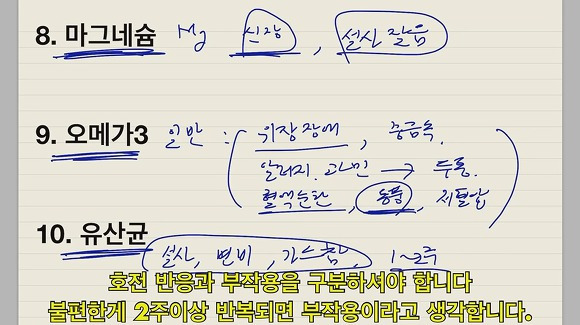 8. 마그네슘 Mg 신장, 설사 잦음
9. 오메가3 일반 : 위장장애, 중금속.
알러지. 과민 → 두통.
혈액순환, 통풍, 저혈압
10. 유산균
설사, 변비, 가스참, 1~2주
호전 반응과 부작용을 구분하셔야 합니다
불편한게 2주이상 반복되면 부작용이라고 생각합니다.